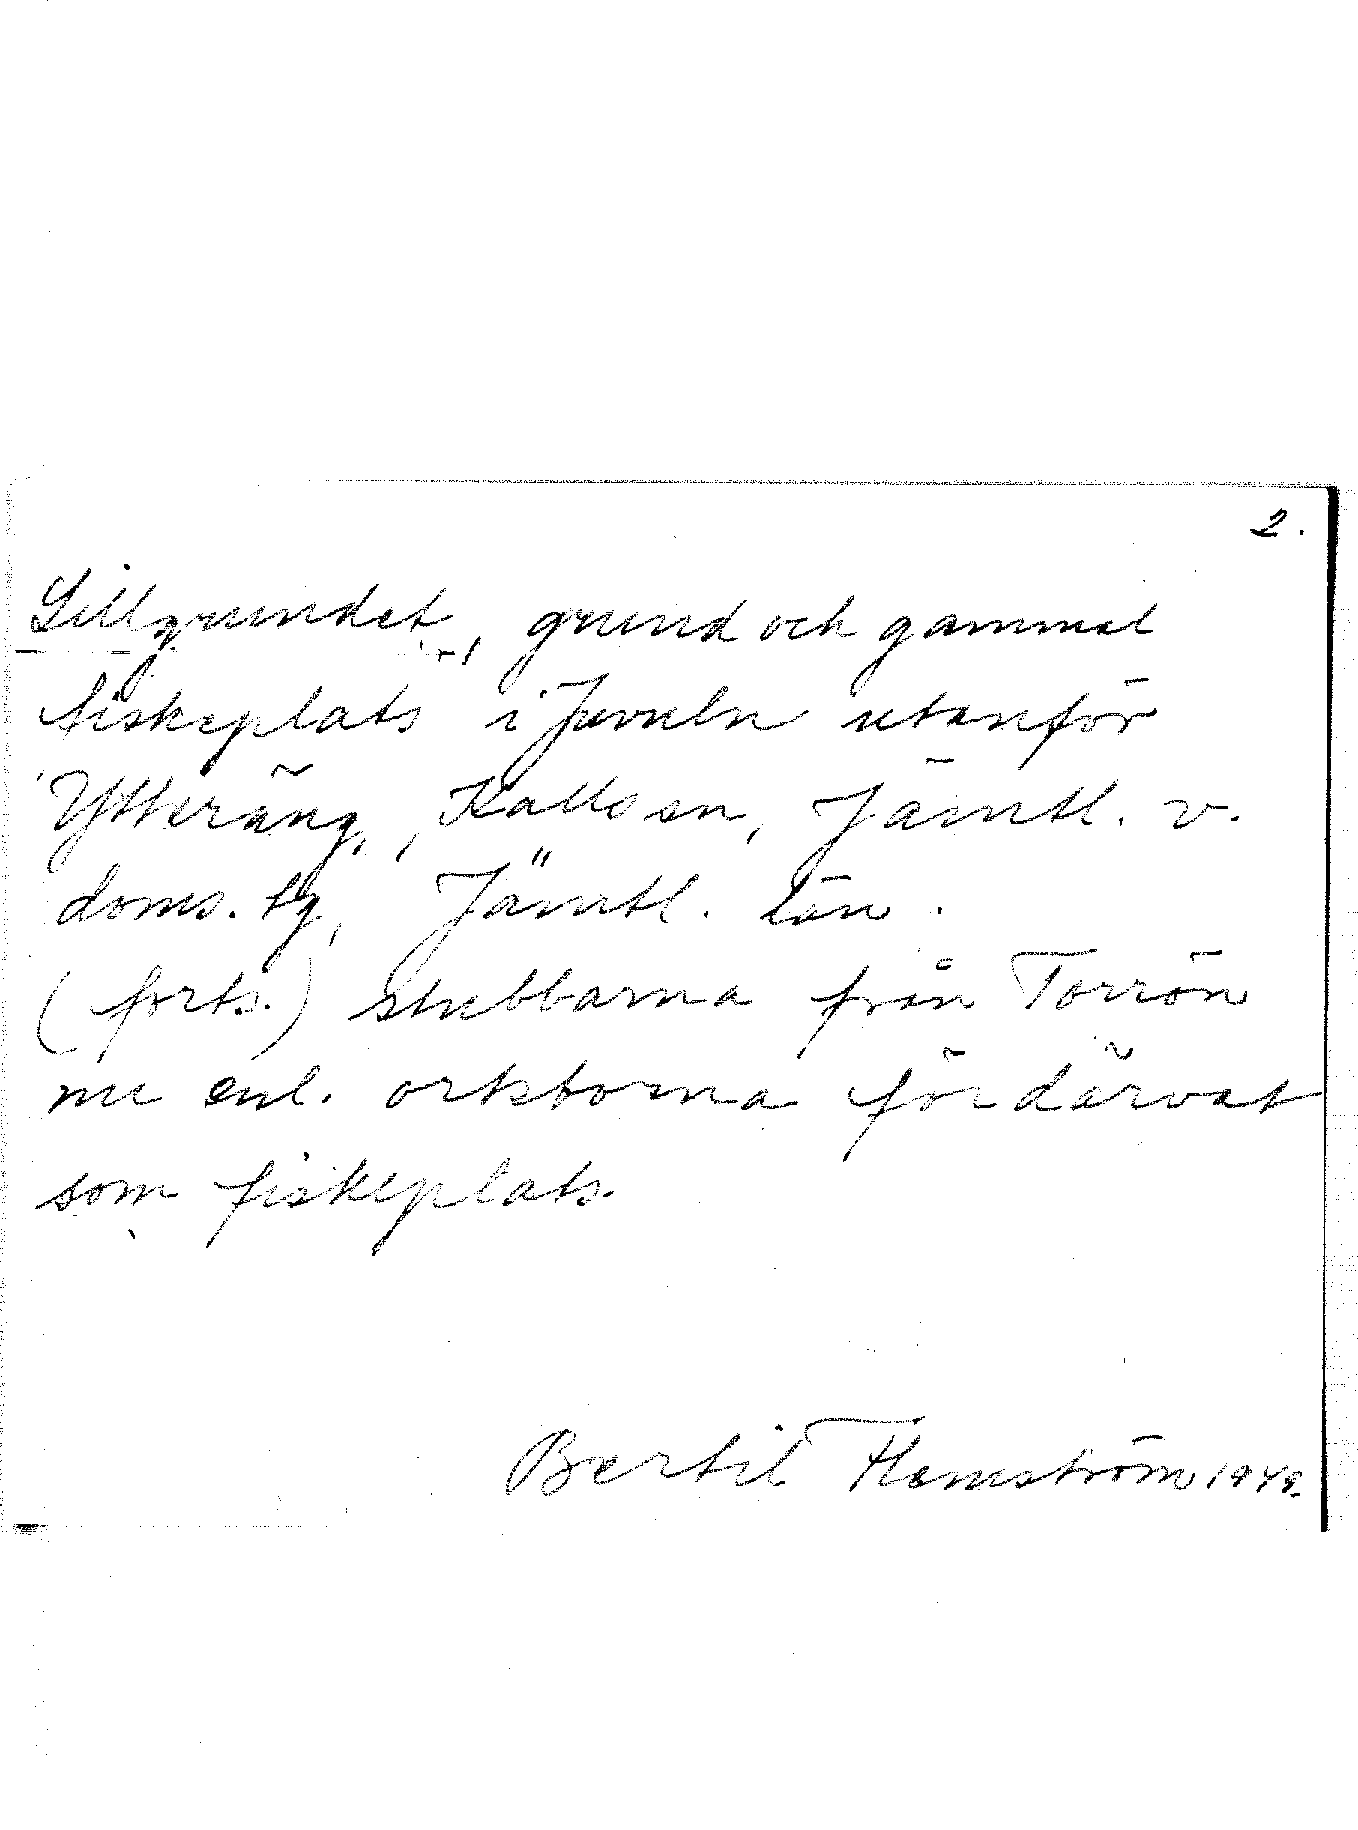 2.
Sillgrundet, grund och gammal
fiskeplats i Juveln utanför
Ytteräng, Kall sn, Jämtl. v.
doms. tg, Jämtl. län.
(forts.) stubbarna från Torrön
nu enl. ortsborna fördärvat
som fiskeplats.
Bertil Flemström 1949.